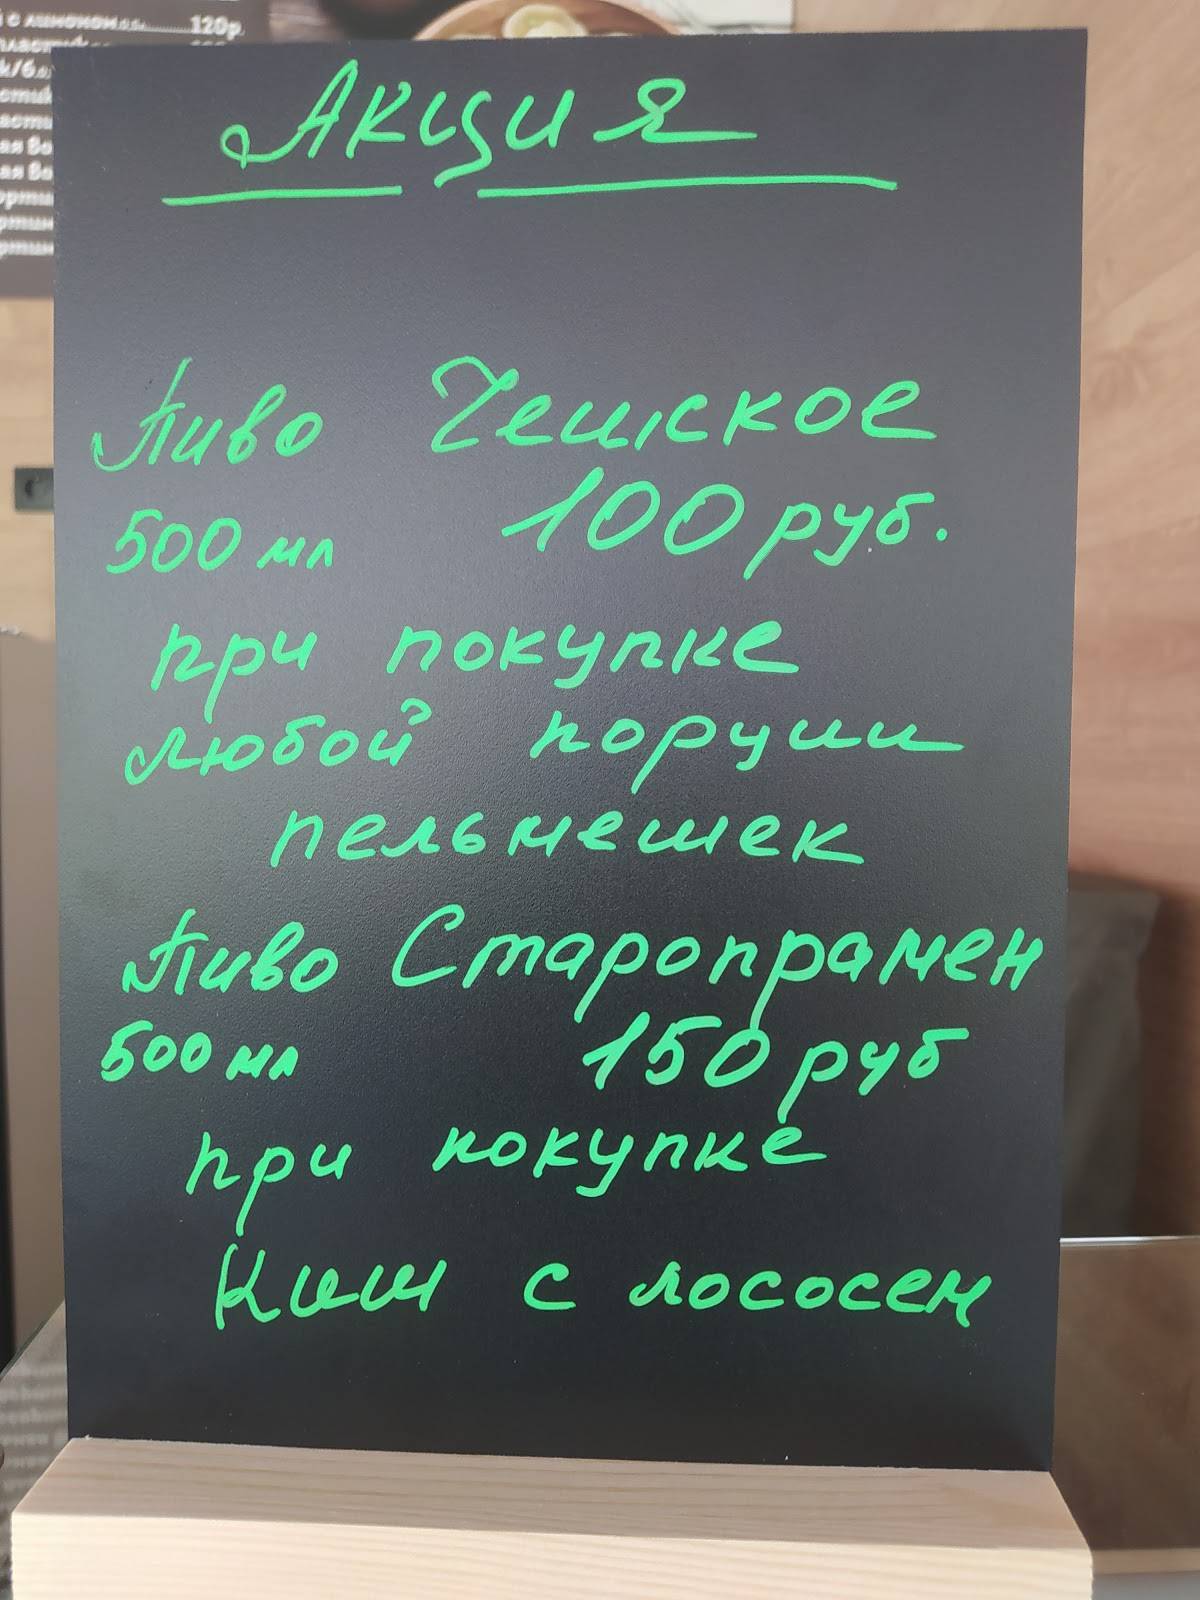 с лимоном 120р.
Акция
Пиво Чешское
500 мл 100 руб.
при покупке
любой порции
пельмешек
Пиво Старопрамен
500 мл 150 руб
при покупке
Киш с лососем